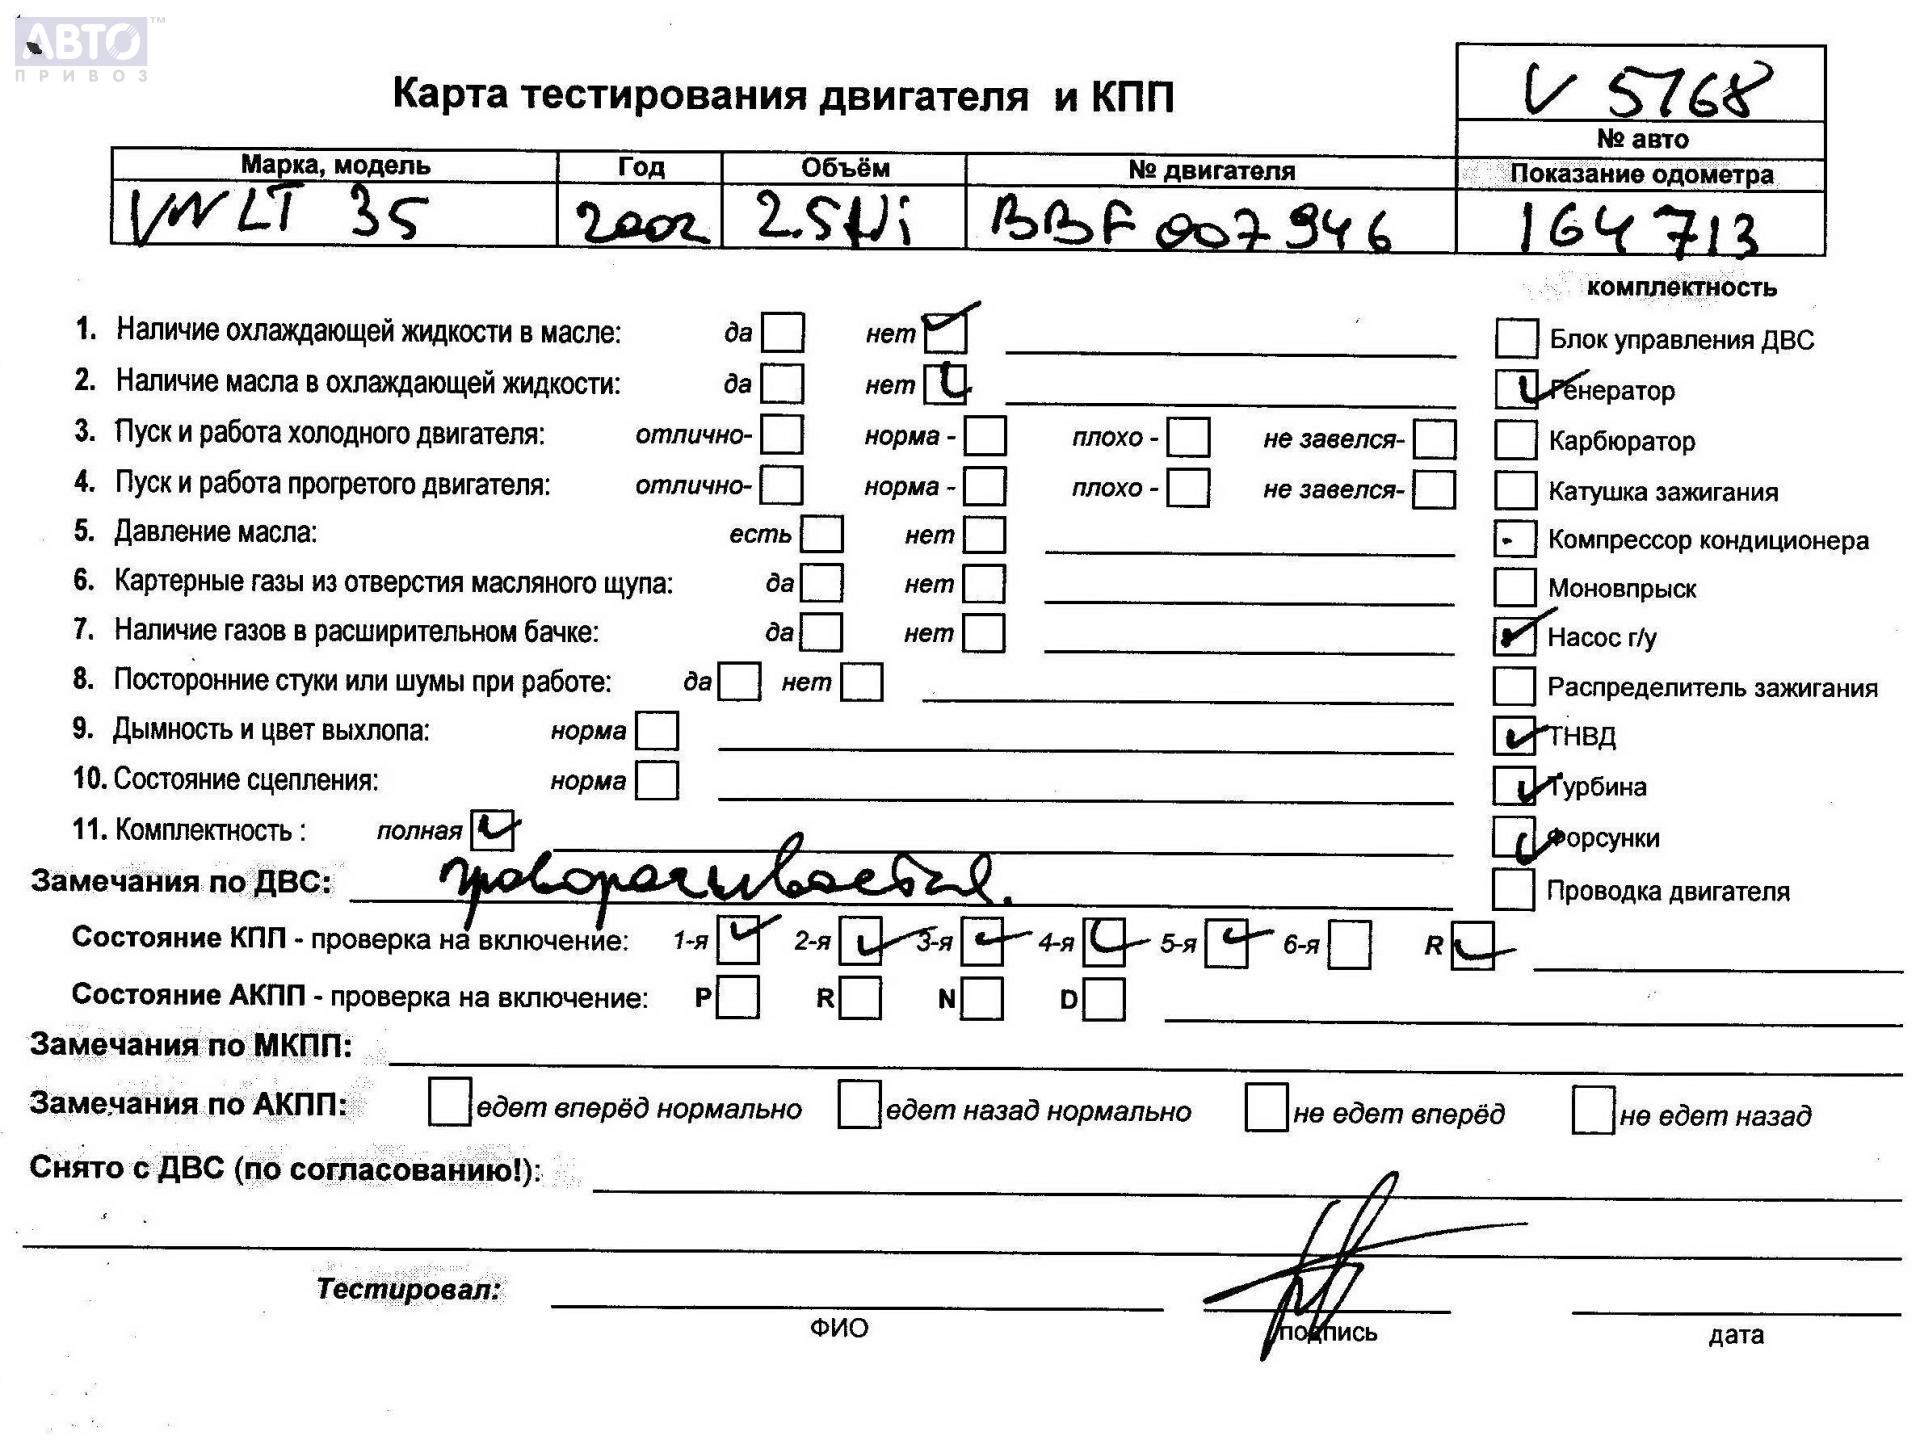 АВТО™
ПРИВОЗ
V 5768
Карта тестирования двигателя и КПП
№ авто
Марка, модель Год Объём № двигателя Показание одометра
VW LT 35 2002 2.5tdi BBF 007946 164713
комплектность
1. Наличие охлаждающей жидкости в масле: да нет
Блок управления ДВС
2. Наличие масла в охлаждающей жидкости: да нет
Генератор
3. Пуск и работа холодного двигателя: отлично- норма - плохо - не завелся-
Карбюратор
4. Пуск и работа прогретого двигателя: отлично- норма - плохо - не завелся-
Катушка зажигания
5. Давление масла: есть нет
Компрессор кондиционера
6. Картерные газы из отверстия масляного щупа: да нет
Моновпрыск
7. Наличие газов в расширительном бачке: да нет
Насос г/у
8. Посторонние стуки или шумы при работе: да нет
Распределитель зажигания
9. Дымность и цвет выхлопа: норма
ТНВД
10. Состояние сцепления: норма
Турбина
11. Комплектность : полная
Форсунки
Замечания по ДВС: проворачивается.
Проводка двигателя
Состояние КПП - проверка на включение: 1-я 2-я 3-я 4-я 5-я 6-я R
Состояние АКПП - проверка на включение: P R N D
Замечания по МКПП:
Замечания по АКПП: едет вперёд нормально едет назад нормально не едет вперёд не едет назад
Снято с ДВС (по согласованию!):
Тестировал:
ФИО подпись дата